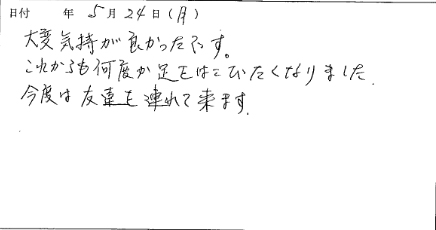 日付　年 5月24日(月)
大変気持が良かったです。
これからも何度か足をはこびたくなりました.
今度は友達を連れて来ます.